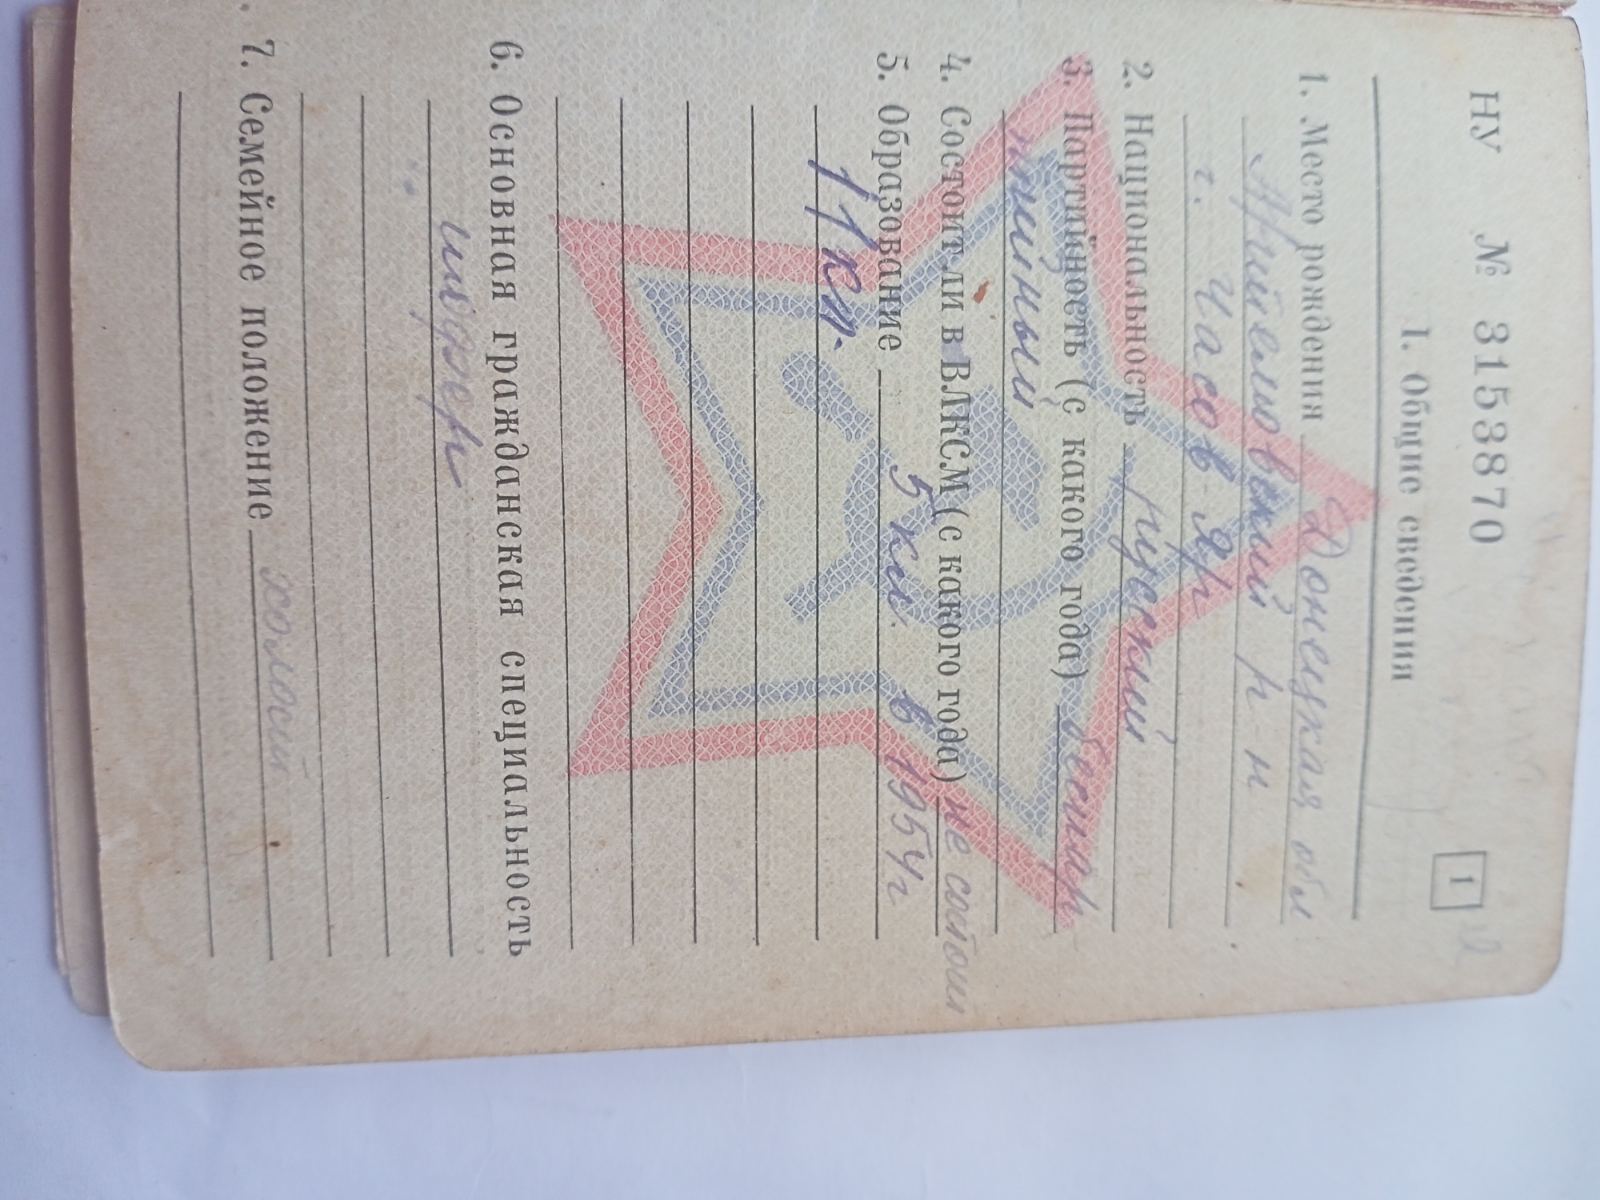 НУ № 3153870
1
I. Общие сведения
1. Место рождения Донецкая обл
Артёмовский р-н
г. Часов Яр
2. Национальность русский
3. Партийность (с какого года) беспар
тийный
4. Состоит ли в ВЛКСМ (с какого года) не состоит
5. Образование 5 кл. в 1954 г
11 кл.
6. Основная гражданская специальность
шофер
7. Семейное положение холост